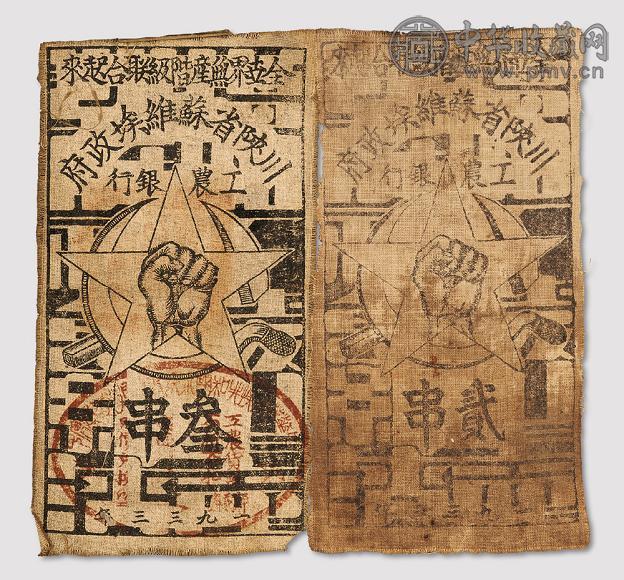 全世界無產階級聯合起來
川陝省蘇維埃政府
工農銀行
叁串
一九三三年
中华收藏网
www.pmv.cn
全世界無產階級聯合起來
川陝省蘇維埃政府
工農銀行
貳串